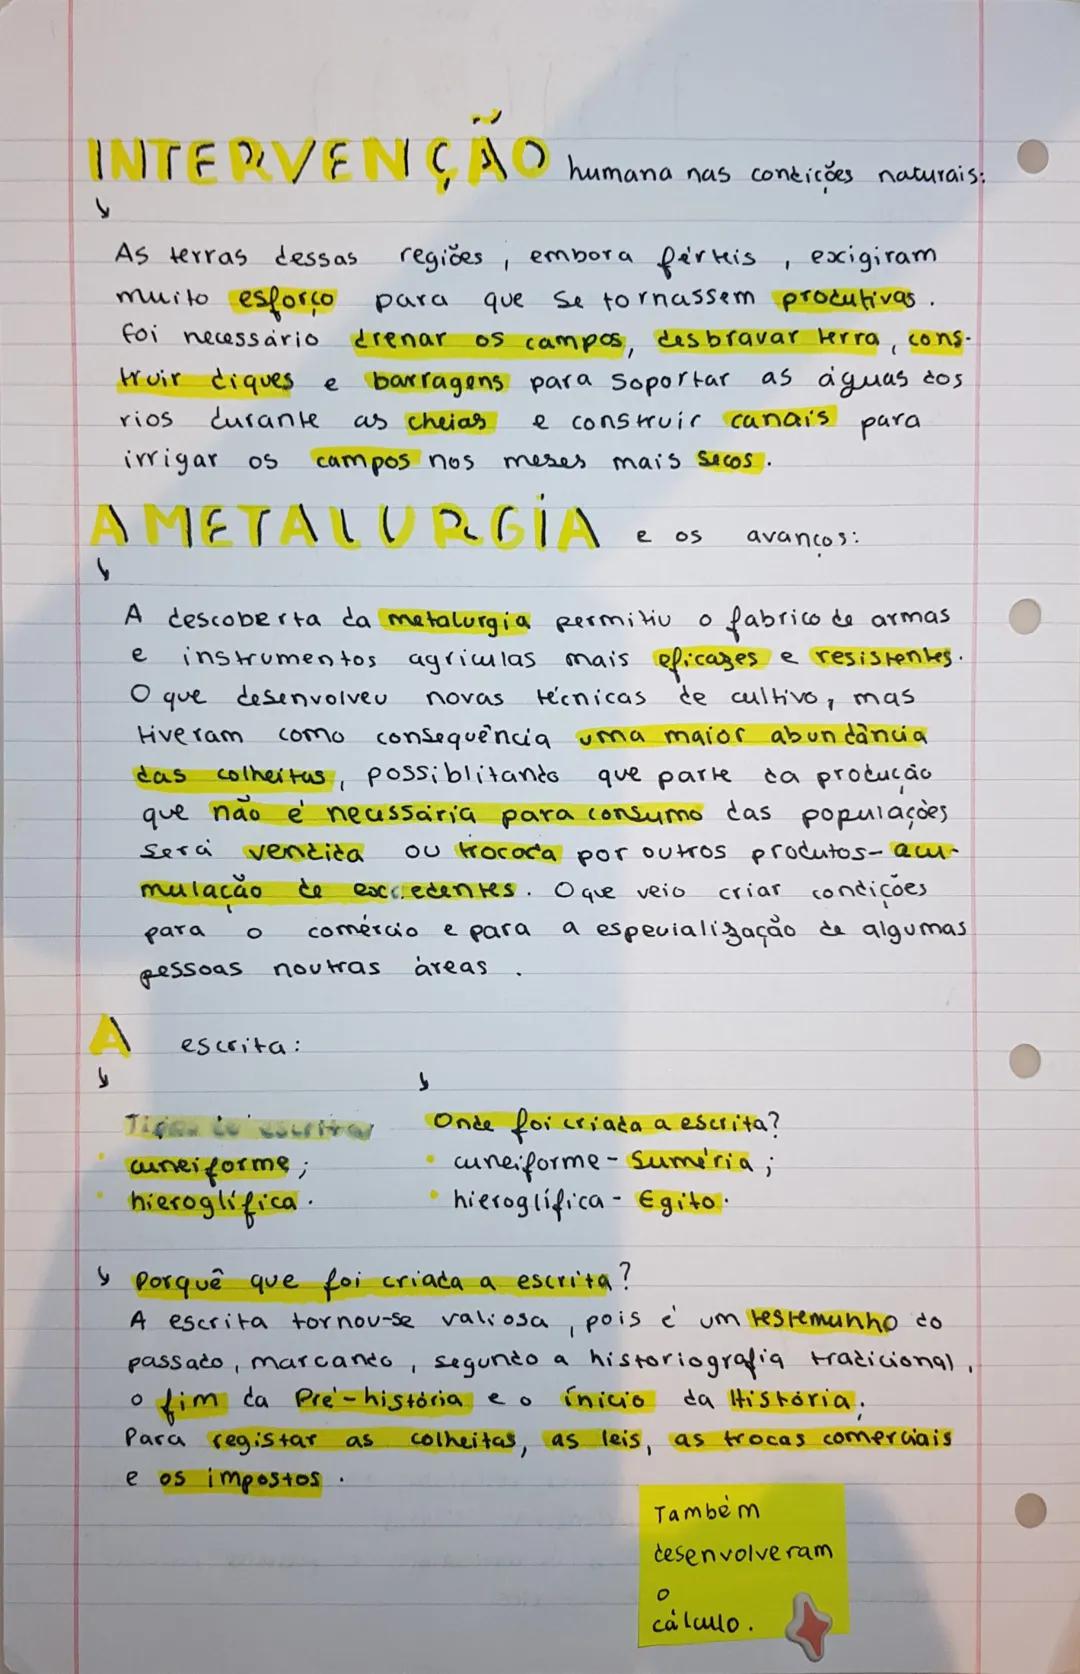 INTERVENÇÃO humana nas condições naturais:
As terras dessas regiões, embora férteis, exigiram
muito esforço para que se tornassem produtivas.
foi necessário drenar os campos, desbravar terra, cons-
truir diques e barragens para soportar as águas dos
rios durante as cheias e construir canais para
irrigar os campos nos meses mais secos.
A METALURGIA e os avanços:
A descoberta da metalurgia permitiu o fabrico de armas
e instrumentos agriculas mais eficazes e resistentes.
O que desenvolveu novas técnicas de cultivo, mas
tiveram como consequência uma maior abundância
das colheitas, possiblitando que parte da produção
que não é necessária para consumo das populações
será vendida ou trocada por outros produtos- acu-
mulação de excedentes. O que veio criar condições
para o comércio e para a especialização de algumas
pessoas noutras áreas.
A escrita:
Tipos de escrita
cuneiforme;
hieroglífica.
Onde foi criada a escrita?
cuneiforme - Suméria;
hieroglífica - Egito.
Porquê que foi criada a escrita?
A escrita tornou-se valiosa, pois é um testemunho do
passado, marcando, segundo a historiografia tradicional,
o fim da Pré-história e o ínicio da História.
Para registar as colheitas, as leis, as trocas comerciais
e os impostos.
Também
desenvolveram
o
cálculo.